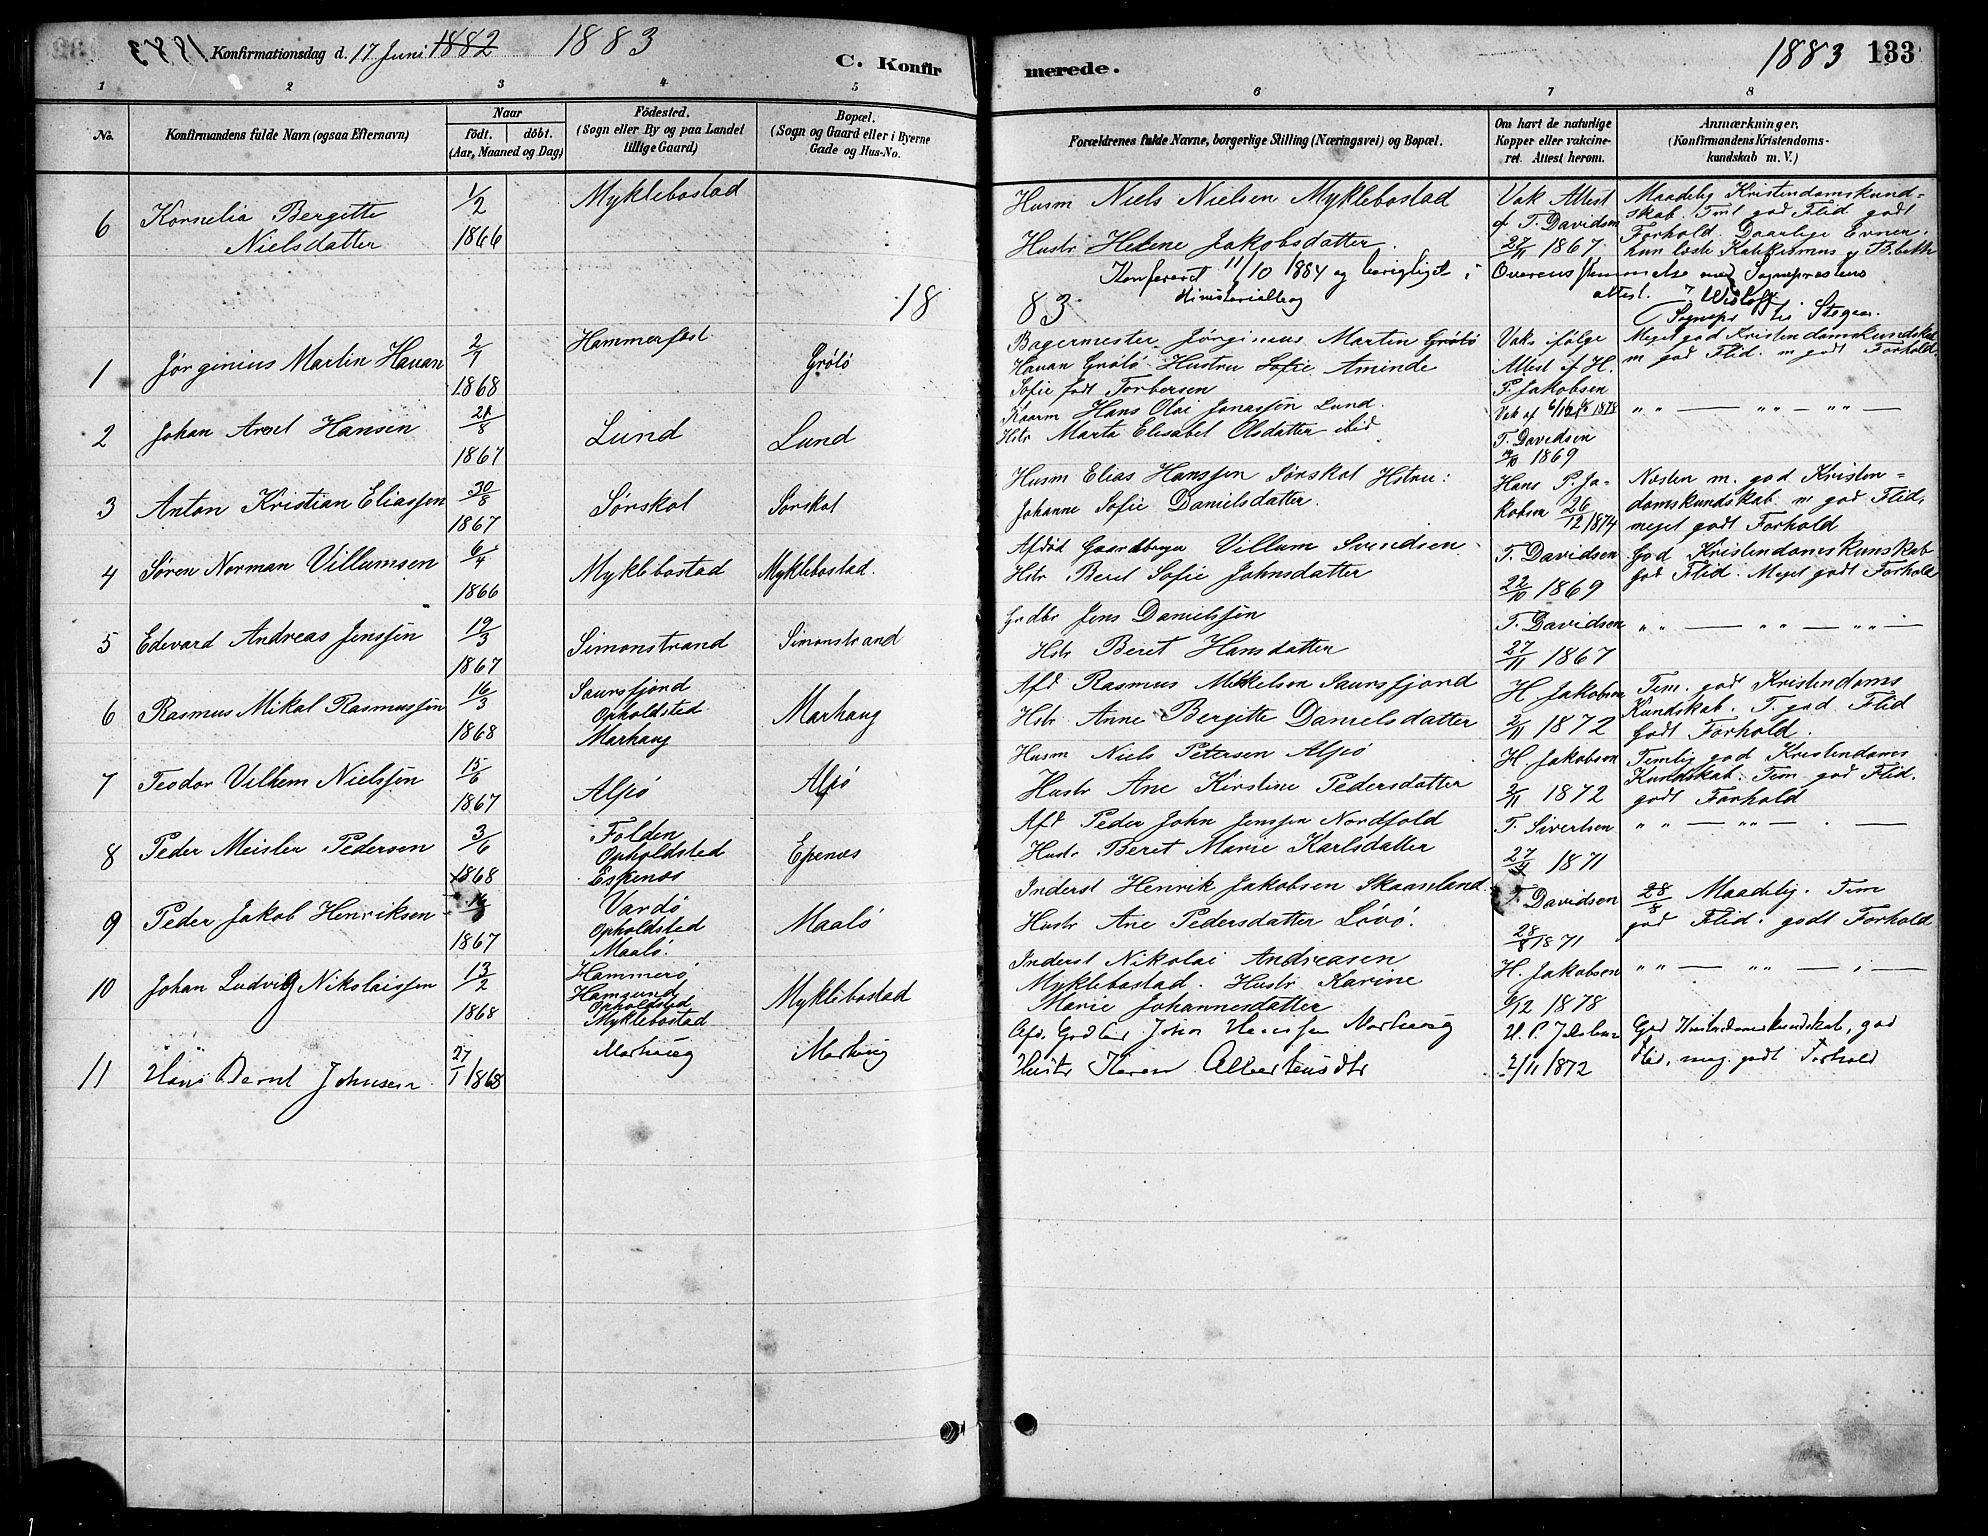 Konfirmationsdag d. 17 Juni 1882 1883
C. Konfirmerede.
1883 133
1 2 3 4 5 6 7 8
No.
Konfirmandens fulde Navn (ogsaa Efternavn)
Naar
födt. döbt.
(Aar, Maaned og Dag)
Födested.
(Sogn eller By og paa Landet
tillige Gaard)
Bopæl.
(Sogn og Gaard eller i Byerne
Gade og Hus-No.
Forældrenes fulde Navne, borgerlige Stilling (Næringsvei) og Bopæl.
Om havt de naturlige
Kopper eller vakcine-
ret. Attest herom.
Anmærkninger.
(Konfirmandens Kristendoms-
kundskab m. V.)
6 Kornelia Bergitte
Nielsdatter
1/2
1866
Myklebostad
Husm Niels Nielsen Myklebostad
Hustr Helene Jakobsdatter.
Vak Attest
af T. Davidsen
27/11 1867.
Maadelig Kristendomskund-
skab. Tml god Flid godt
Forhold. Daarlige Evner.
Konfereret 11/10 1884 og berigtiget i Overensstemmelse med Sognepræstens
Ministerialbog attest.
18 83
1 Jørginius Martin Havan
2/7
1868
Hammerfest
Grötö
Bagermester Jørginius Martin Grötö
Havan Grötö Hustru Sofie Aminde
Sofie født Torbersen
Vaks ifølge
Attest af H.
P. Jakobsen
Meget god Kristendomskundskab
m god Flid. m godt Forhold.
2 Johan Arnt Hansen
21/8
1867
Lund
Lund
Kaarm Hans Olai Jonassen Lund.
Hstr Marta Elisabet Olsdatter ibid
T. Davidsen
1869
" " — " " — " " —
3 Anton Kristian Eliassen
30/8
1867
Sørskot
Sørskot
Husm Elias Hanssen Sørskot Hstru:
Johanne Sofie Danielsdatter.
Hans P. Ja-
kobsen 26/12 1874
Næsten m. god Kristen-
domskundskab. m god Flid,
meget godt Forhold
4 Sören Norman Villumsen
6/4
1866
Myklebostad
Myklebostad.
Afdød Gaardbruger Villum Svendsen
Hstr Beret Sofie Johnsdatter
T. Davidsen
22/10 1869
God Kristendomskunskab
god Flid. Meget godt Forhold
5 Edevard Andreas Jenssen
19/3
1867
Simonstrand
Simonstrand
Grdbr Jens Danielssen
Hstr Beret Hansdatter
T. Davidsen
27/11 1867
" " — " " — " " —
6 Rasmus Mikal Rasmussen
16/3
1868
Saursfjord
Opholdsted
Marhaug
Marhaug
Afd Rasmus Mikelsen Saursfjord
Hstr Anne Bergitte Danielsdatter
H Jakobsen
2/11 1872
Tem. god Kristendoms
Kundskab. T. god Flid
godt Forhold.
7 Teodor Vilhem Nielssen
15/6
1867
Alpö
Alpö
Husm Niels Petersen Alpö
Hustr Ane Kirstine Pedersdatter
H. Jakobsen
2/11 1872
Temlig god Kristendoms
Kundskab. Tem god Flid.
godt Forhold
8 Peder Meisler Pedersen
3/6
1868
Folden
Opholdsted
Espenæs
Epenæs
Afd Peder John Jenssen Nordfold
Hustr Beret Marie Karlsdatter
T. Sivertsen
1871
" " — " " — . —
9 Peder Jakob Henriksen
1867
Vardö
Opholdsted
Maalö.
Maalö
Inderst Henrik Jakobsen Skaanland.
Hustr Ane Pedersdatter Lövö.
T. Davidsen
28/8 1871
28/8 Maadelig. Tem
god Flid. godt Forhold
10 Johan Ludvig Nikolaissen
13/2
1868
Hammerö
Hamsund
Opholdsted
Myklebostad
Myklebostad
Inderst Nikolai Andreasen
Myklebostad. Hustr Karine
Marie Johannesdatter
H. Jakobsen
6/12 1878
" " — " " — " —
11 Hans Bernt Johnsen
27/1 1868
Marhaug
Marhaug
Afd. Johan Marhaug
Hustr Karen Albertsdtr
H. P. Jakobsen
2/11 1872
God Kristendomskundskab, god
Flid, meg. godt Forhold